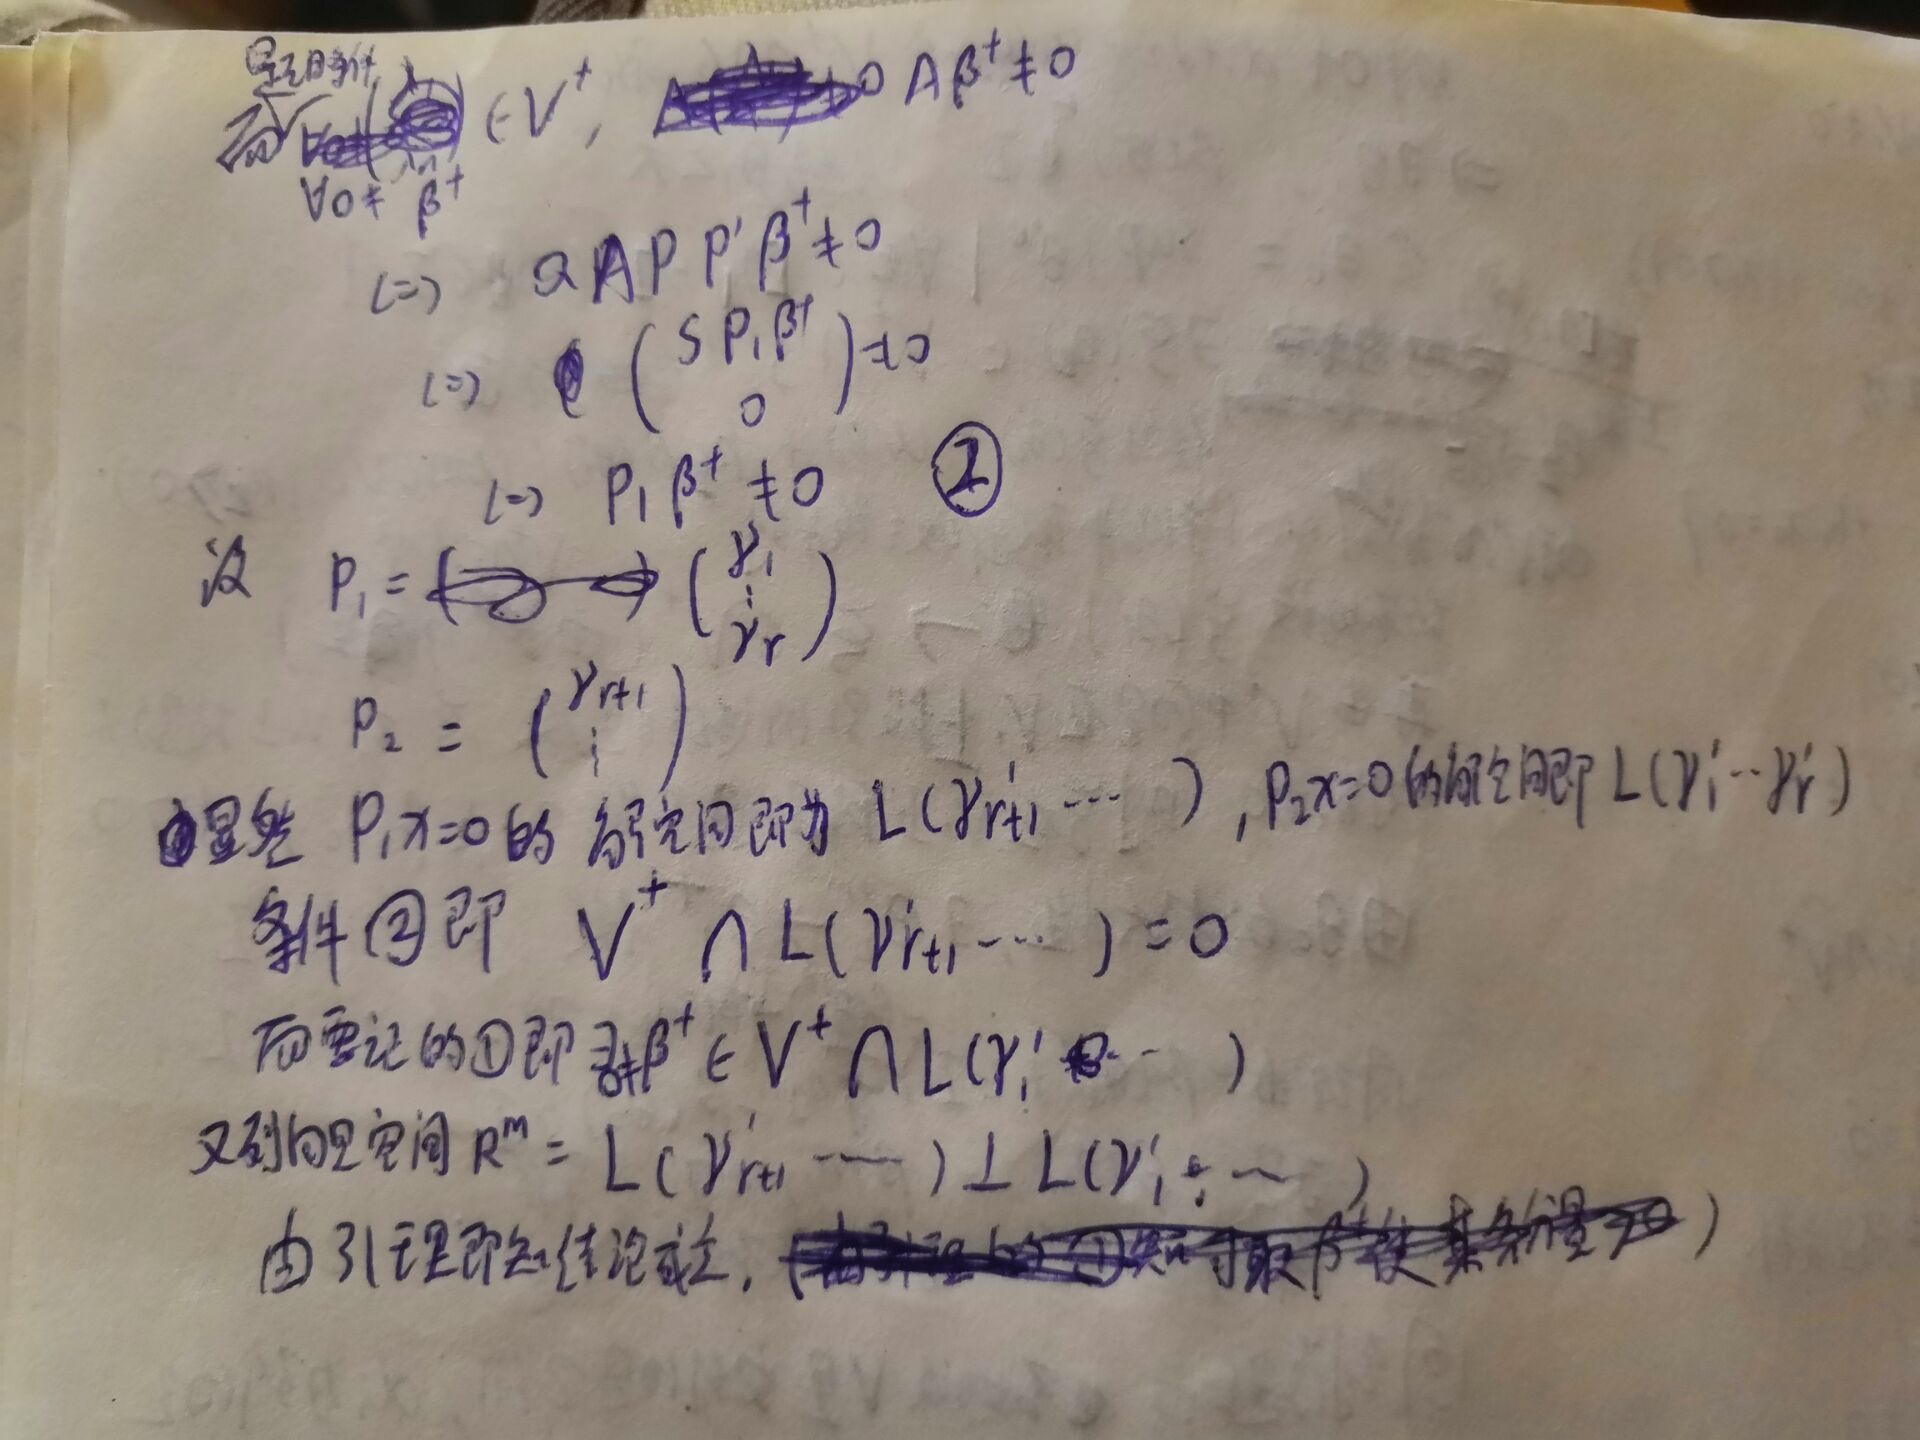 而 题目条件 ∈V⁺, Aβ⁺≠0
∀0≠ β⁺
(=) QAPP'β⁺≠0
(=) (SP₁β⁺ 0)≠0
(=) P₁β⁺≠0 ②
设 P₁= (γ₁ ⋮ γr)
P₂ = (γr+1 ⋮)
显然 P₁x=0的解空间即为 L(γ'r+1 ⋯ ), P₂x=0的解空间即 L(γ'₁⋯γ'r)
条件②即 V⁺ ∩ L(γ'r+1 ⋯ ) = 0
而要证的①即 ∃0≠β⁺∈V⁺∩L(γ'₁ ⋯ )
又列向量空间 Rᵐ = L(γ'r+1 ⋯ ) ⊥ L(γ'₁ ⋯ )
由引理即知结论成立.